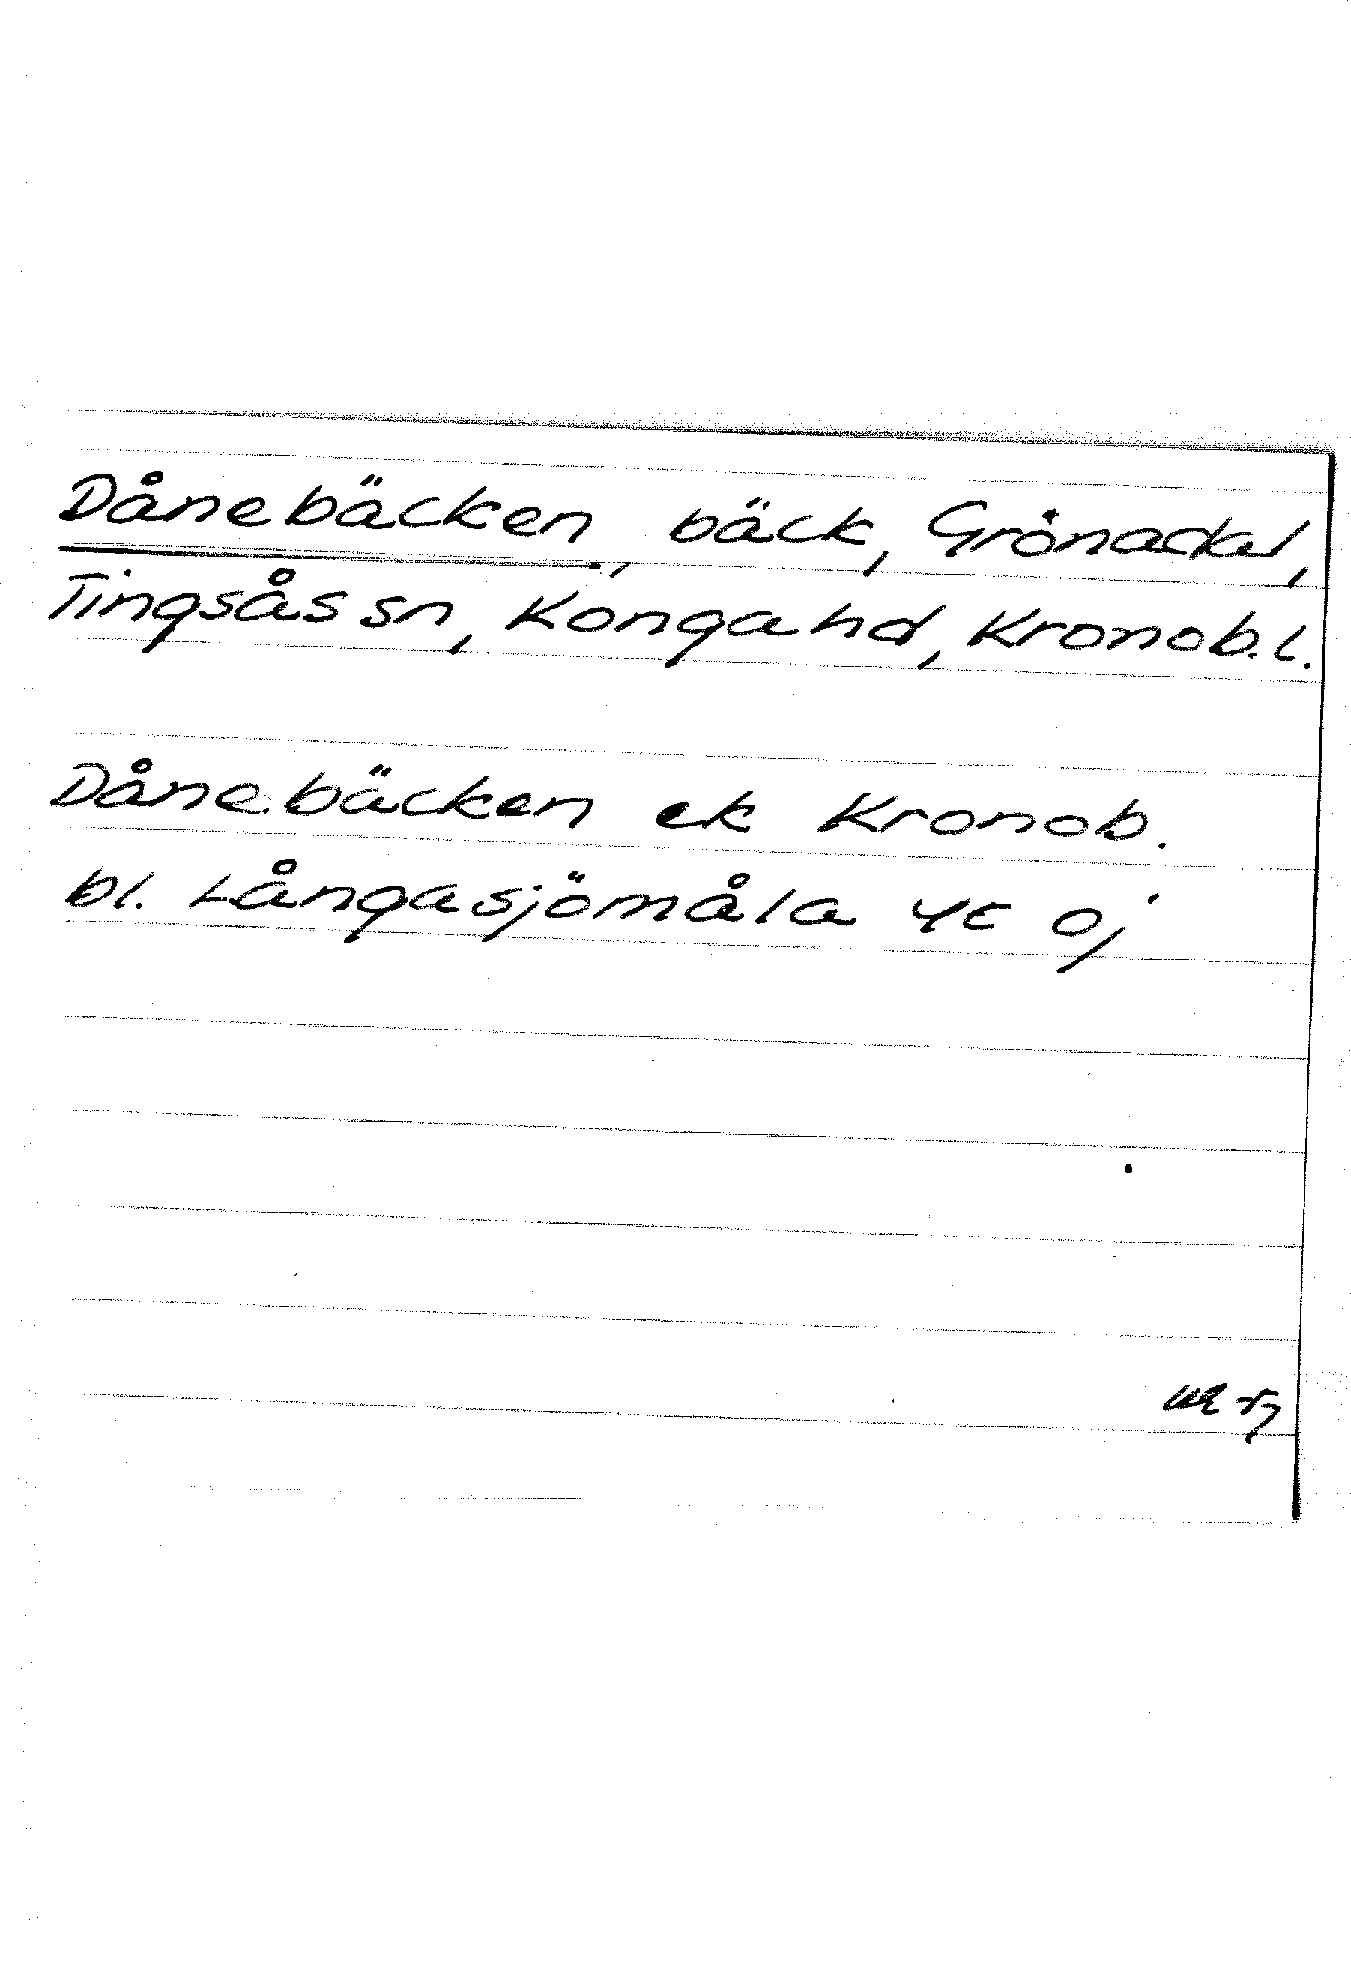 Dånebäcken, bäck, Grönadal,
Tingsås sn, Konga hd, Kronob. l.
Dånebäcken ek Kronob.
bl. Långasjömåla 4E Oj